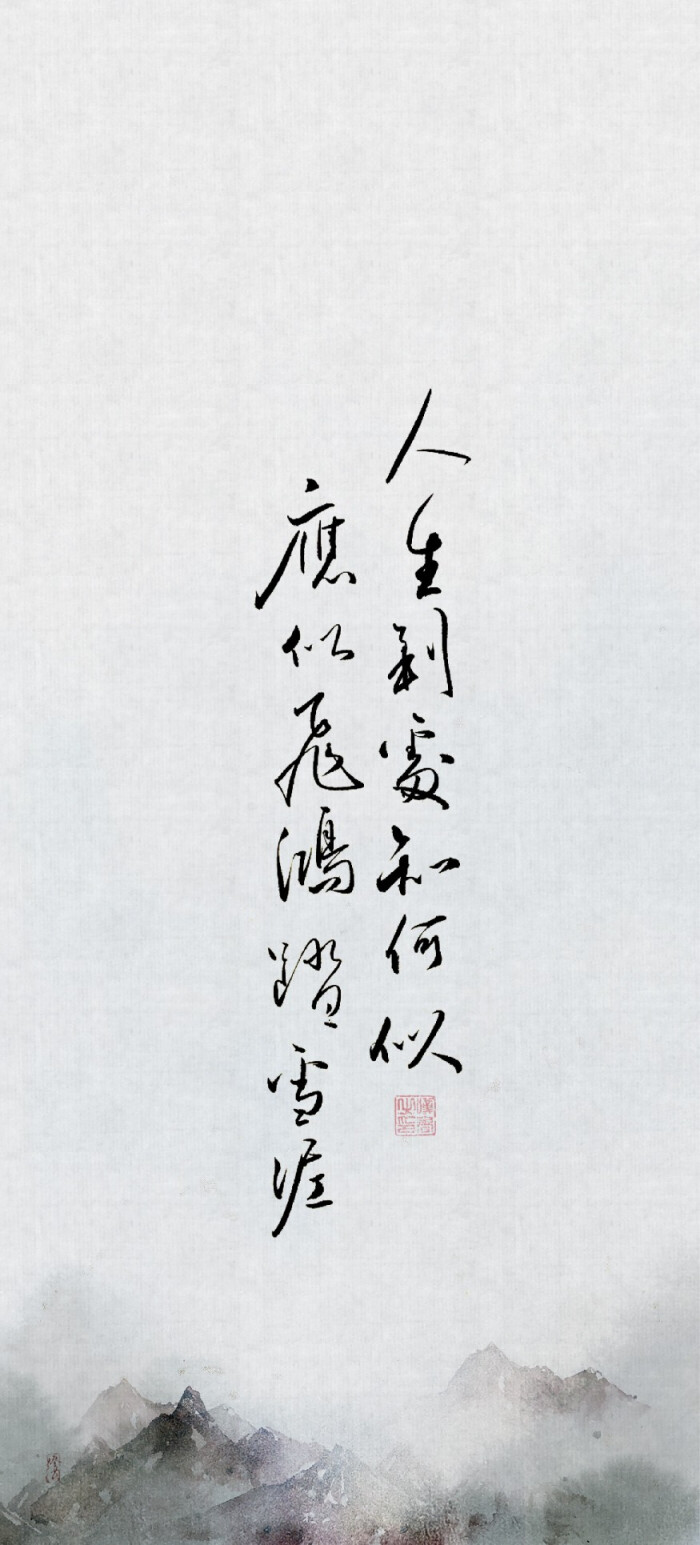 人生到處知何似
應似飛鴻踏雪涯